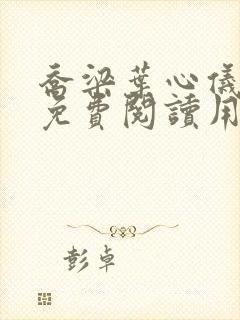 喬梁葉心儀
免費閱讀用
彭卓